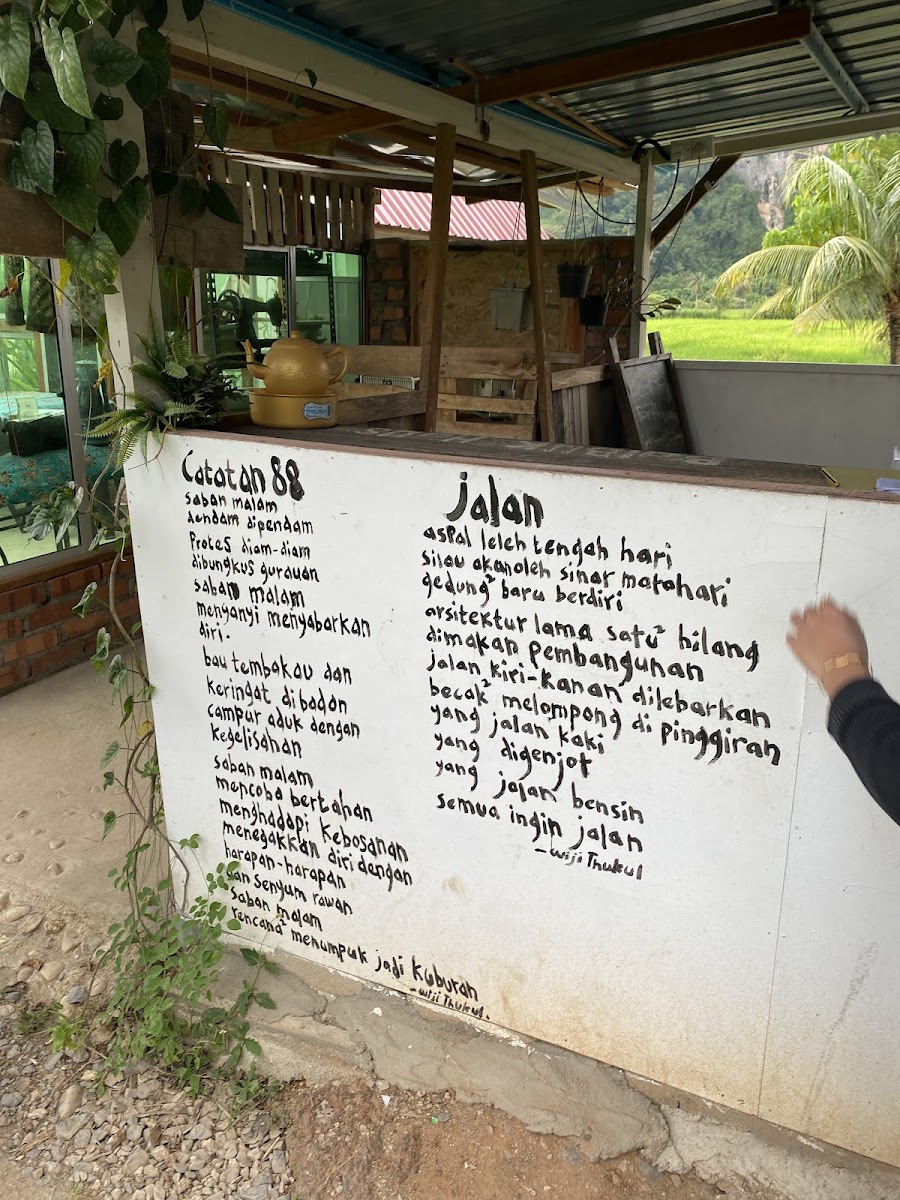 Catatan 88
saban malam
dendam dipendam
Protes diam-diam
dibungkus gurauan
saban malam
menyanyi menyabarkan
diri.
bau tembakau dan
keringat dibadan
campur aduk dengan
kegelisahan
saban malam
mencoba bertahan
menghadapi kebosanan
menegakkan diri dengan
harapan-harapan
dan senyum rawan
saban malam
rencana² menumpuk jadi kuburan
-wiji Thukul.
Jalan
aspal leleh tengah hari
silau akan oleh sinar matahari
gedung² baru berdiri
arsitektur lama satu² hilang
dimakan pembangunan
jalan kiri-kanan dilebarkan
becak² melompong di pinggiran
yang jalan kaki
yang digenjot
yang jalan bensin
semua ingin jalan
-wiji Thukul